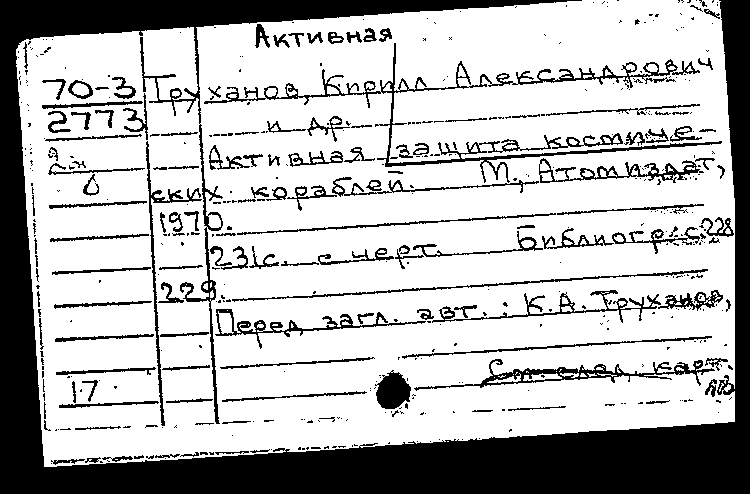 Активная
70-3 Труханов, Кирилл Александрович
2773 и др.
2н Активная защита космиче-
ских кораблей. М., Атомиздат,
1970.
231с. с черт. Библиогр.: с.228
229.
Перед загл. авт.: К.А. Труханов,
См. след. карт.
17